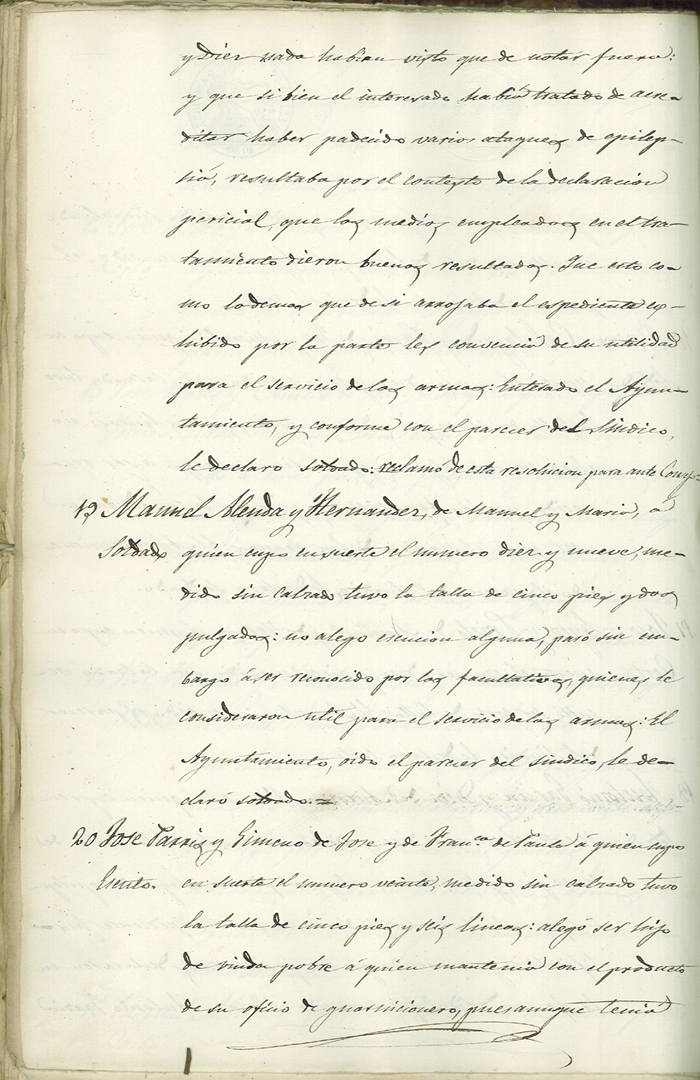 y Diez nada habian visto que de notar fuera:
y que si bien el interesado habia tratado de acre-
ditar haber padecido varios ataques de epilep-
sia, resultaba por el contesto de la declaracion
pericial, que los medios empleados en el tra-
tamiento dieron buenos resultados. Que esto co-
mo lo demas que de si arrojaba el espediente ex-
hibido por la parte les convencia de su utilidad
para el servicio de las armas: Enterado el Ayun-
tamiento, y conforme con el parecer del Sindico,
le declaro soldado: reclamó de esta resolucion para ante
19 Manuel Alenda y Hernandez, de Manuel y Maria, a
Soldado quien cupo en suerte el numero diez y nueve, me-
dido sin calzado tuvo la talla de cinco pies y dos
pulgadas: no alego esencion alguna, pasó sin em-
bargo á ser reconocido por los facultativos, quienes le
consideraron util para el servicio de las armas: El
Ayuntamiento, oido el parecer del sindico, le de-
claró soldado.=
20 Jose y Gimeno de Jose y de Fran.ca de Paula á quien cupo
Esento. en suerte el numero veinte, medido sin calzado tuvo
la talla de cinco pies y seis lineas: alegó ser hijo
de viuda pobre á quien mantenia con el producto
de su oficio de guarnicionero, pues aunque tenia